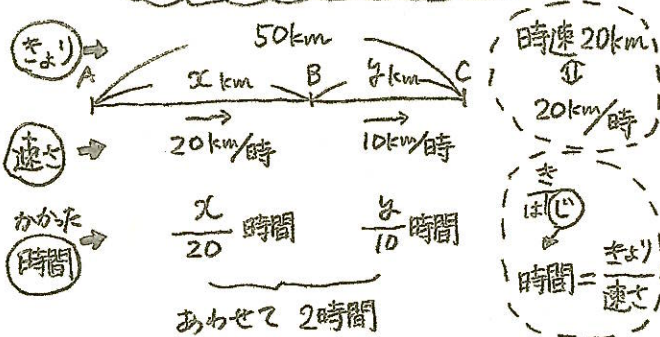 きょり
50km
A
x km
B
y km
C
速さ
20km/時
10km/時
かかった
時間
x/20 時間
y/10 時間
あわせて 2時間
時速20km
⇕
20km/時
き
は じ
時間=きょり/速さ